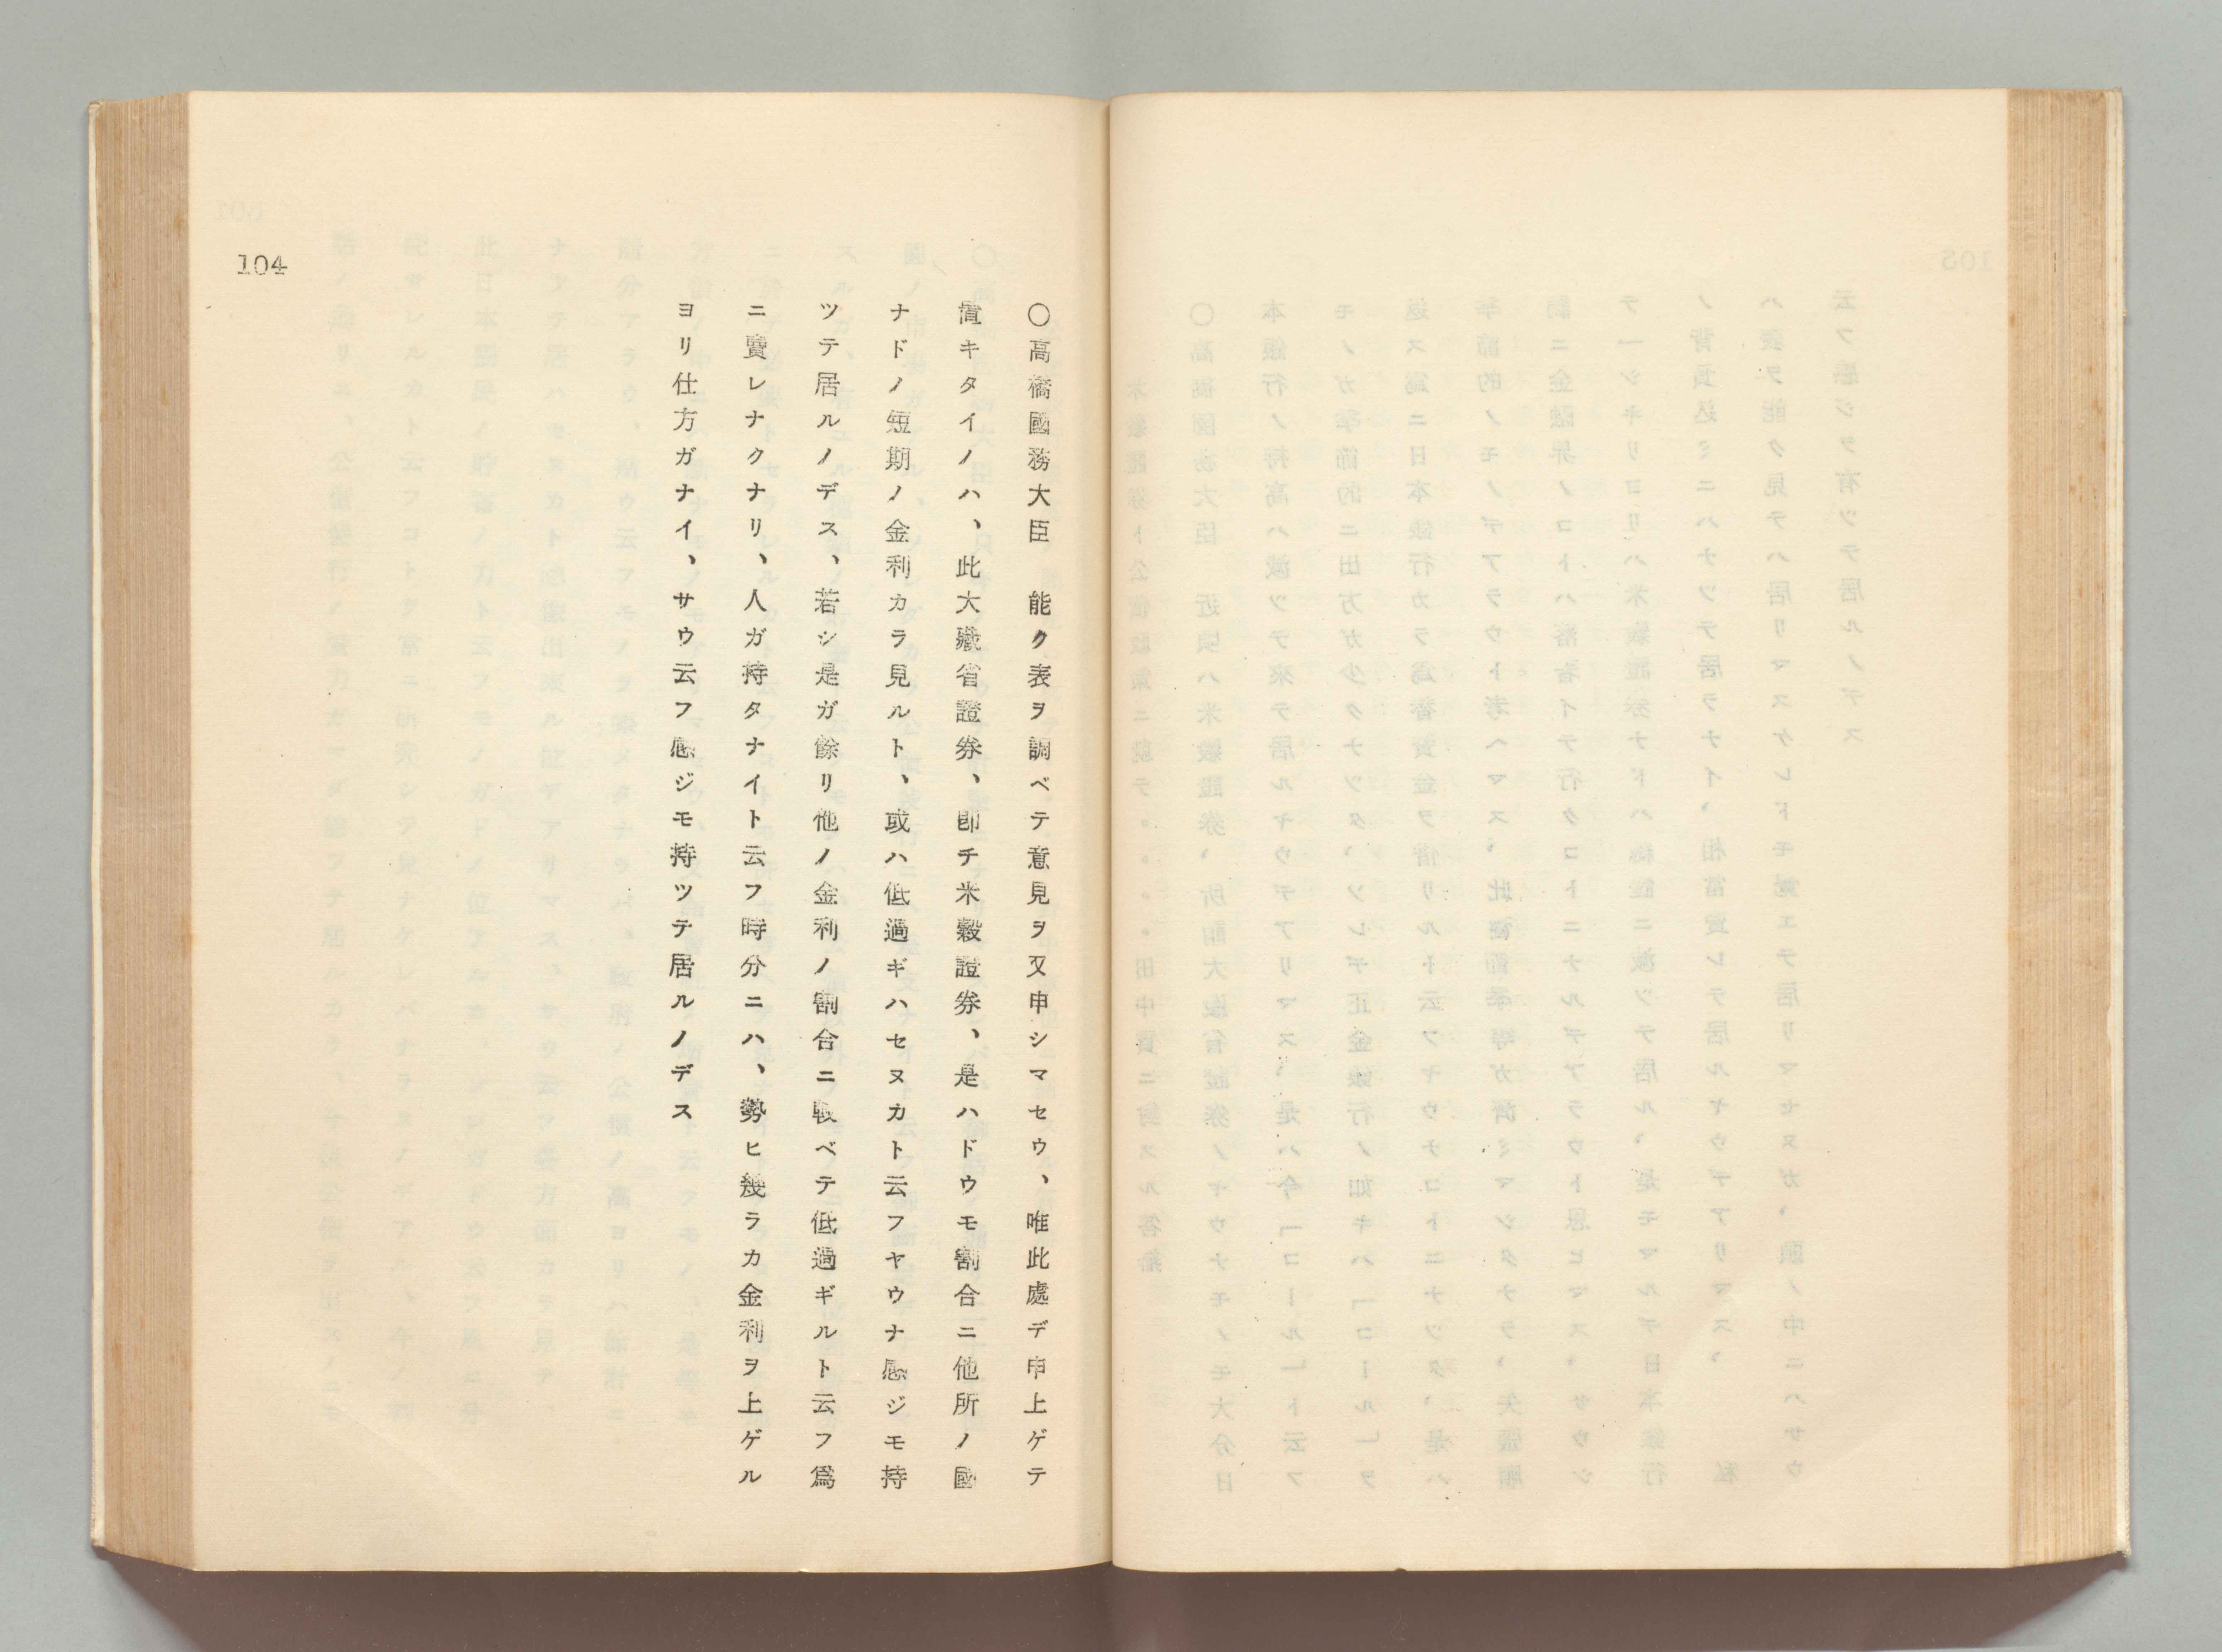 104
〇高橋國務大臣　能ク表ヲ調ベテ意見ヲ又申シマセウ、唯此處デ申上ゲテ
置キタイノハ、此大藏省證券、卽チ米穀證券、是ハドウモ割合ニ他所ノ國
ナドノ短期ノ金利カラ見ルト、或ハ低過ギハセヌカト云フヤウナ感ジモ持
ツテ居ルノデス、若シ是ガ餘リ他ノ金利ノ割合ニ較ベテ低過ギルト云フ爲
ニ賣レナクナリ、人ガ持タナイト云フ時分ニハ、勢ヒ幾ラカ金利ヲ上ゲル
ヨリ仕方ガナイ、サウ云フ感ジモ持ツテ居ルノデス